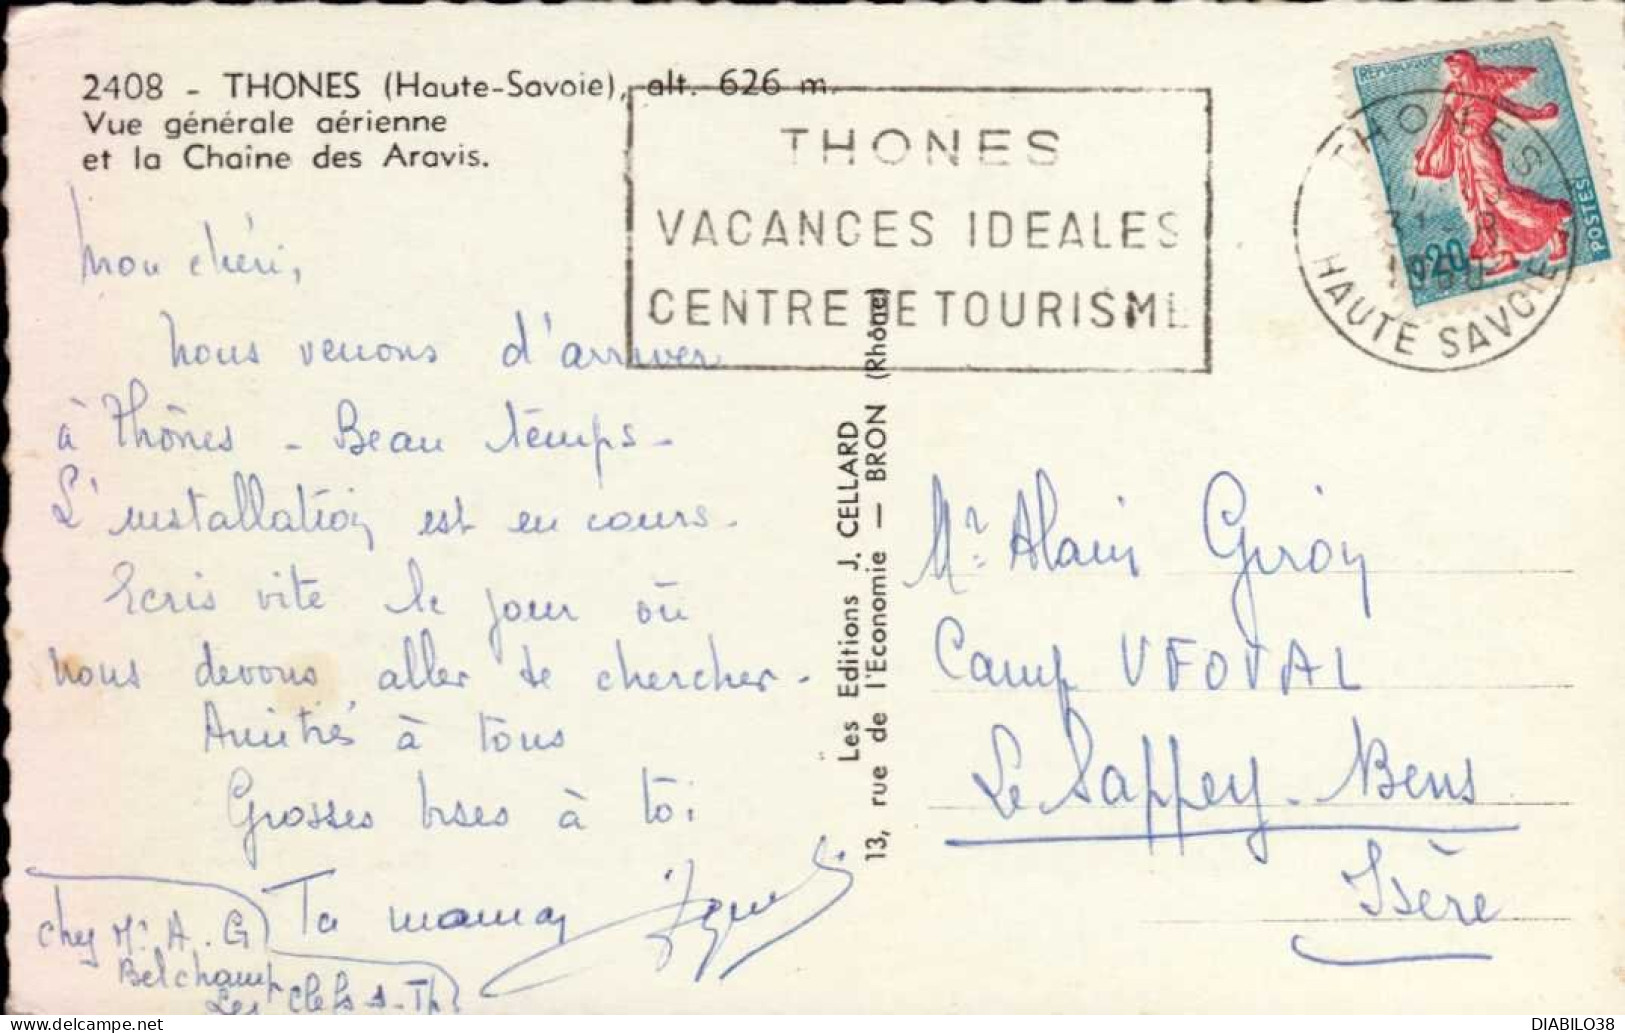 2408 - THONES (Haute-Savoie), alt. 626 m.
Vue générale aérienne
et la Chaîne des Aravis.
THONES
VACANCES IDEALES
CENTRE DE TOURISME
REPUBLIQUE FRANCAISE
POSTES
0,20
THONES
HAUTE SAVOIE
Mon chéri,
Nous venons d'arriver
à Thônes - Beau temps -
L'installation est en cours -
Ecris vite le jour où
nous devons aller te chercher -
Amitiés à tous
Grosses bises à toi
Ta maman
chez Mr A. G
Belchamp
Les Clefs s. Th.
Les Editions J. CELLARD
13, rue de l'Economie — BRON (Rhône)
Mr Alain Giron
Camp UFOVAL
Le Sappey - Bens
Isère
DIABILO38